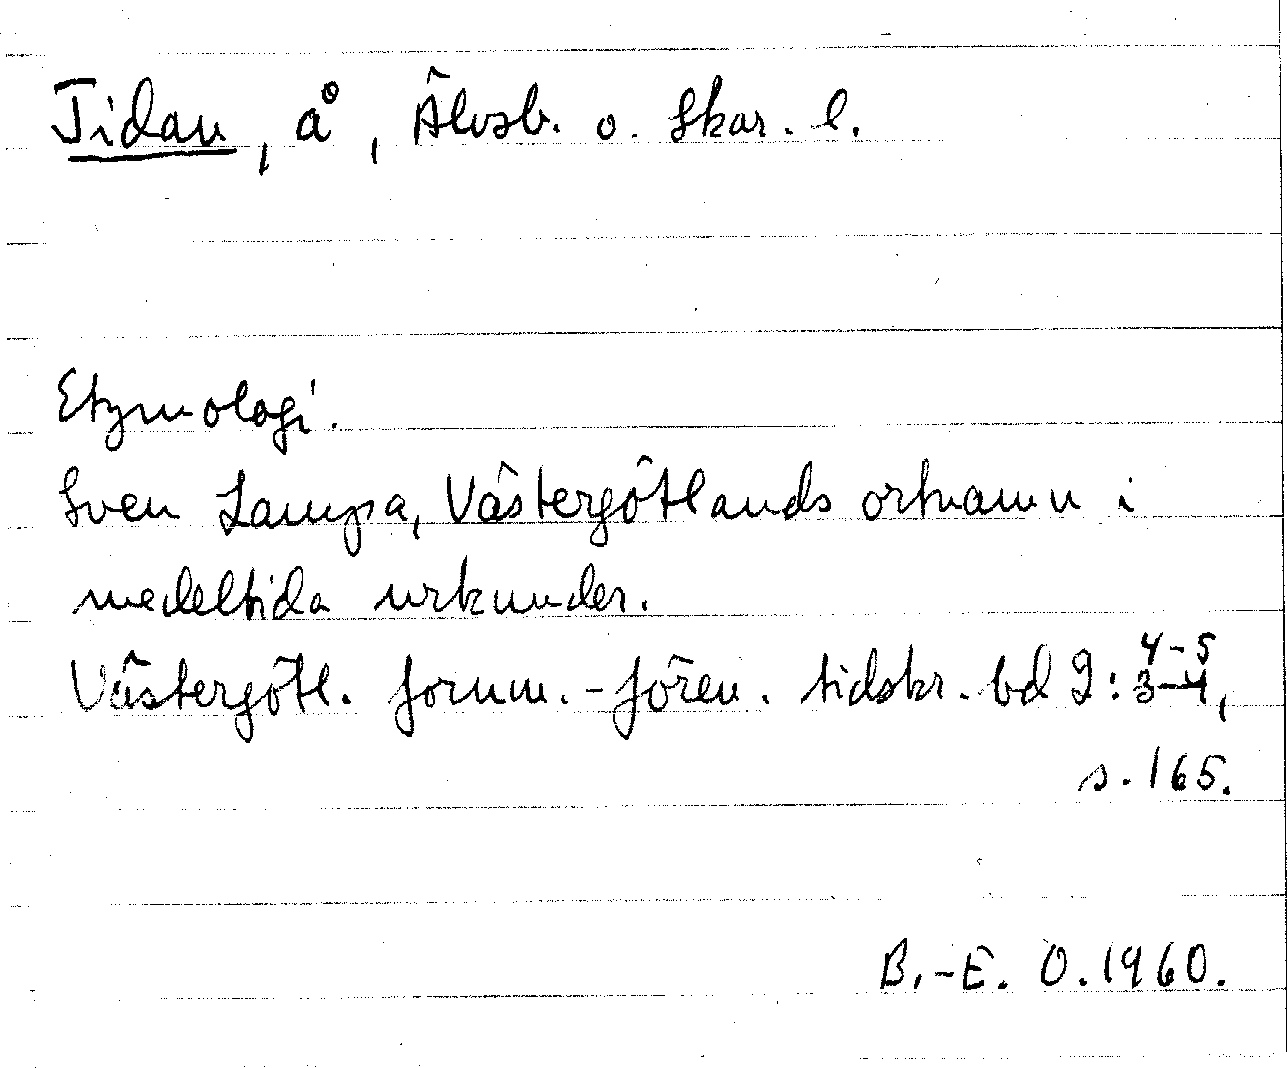 Tidan, å, Älvsb. o. Skar. l.
Etymologi.
Sven Lampa, Västergötlands ortnamn i
medeltida urkunder.
Västergötl. fornm.-fören. tidskr. bd 2: 4-5
3-4,
s. 165.
B.-E. O. 1960.